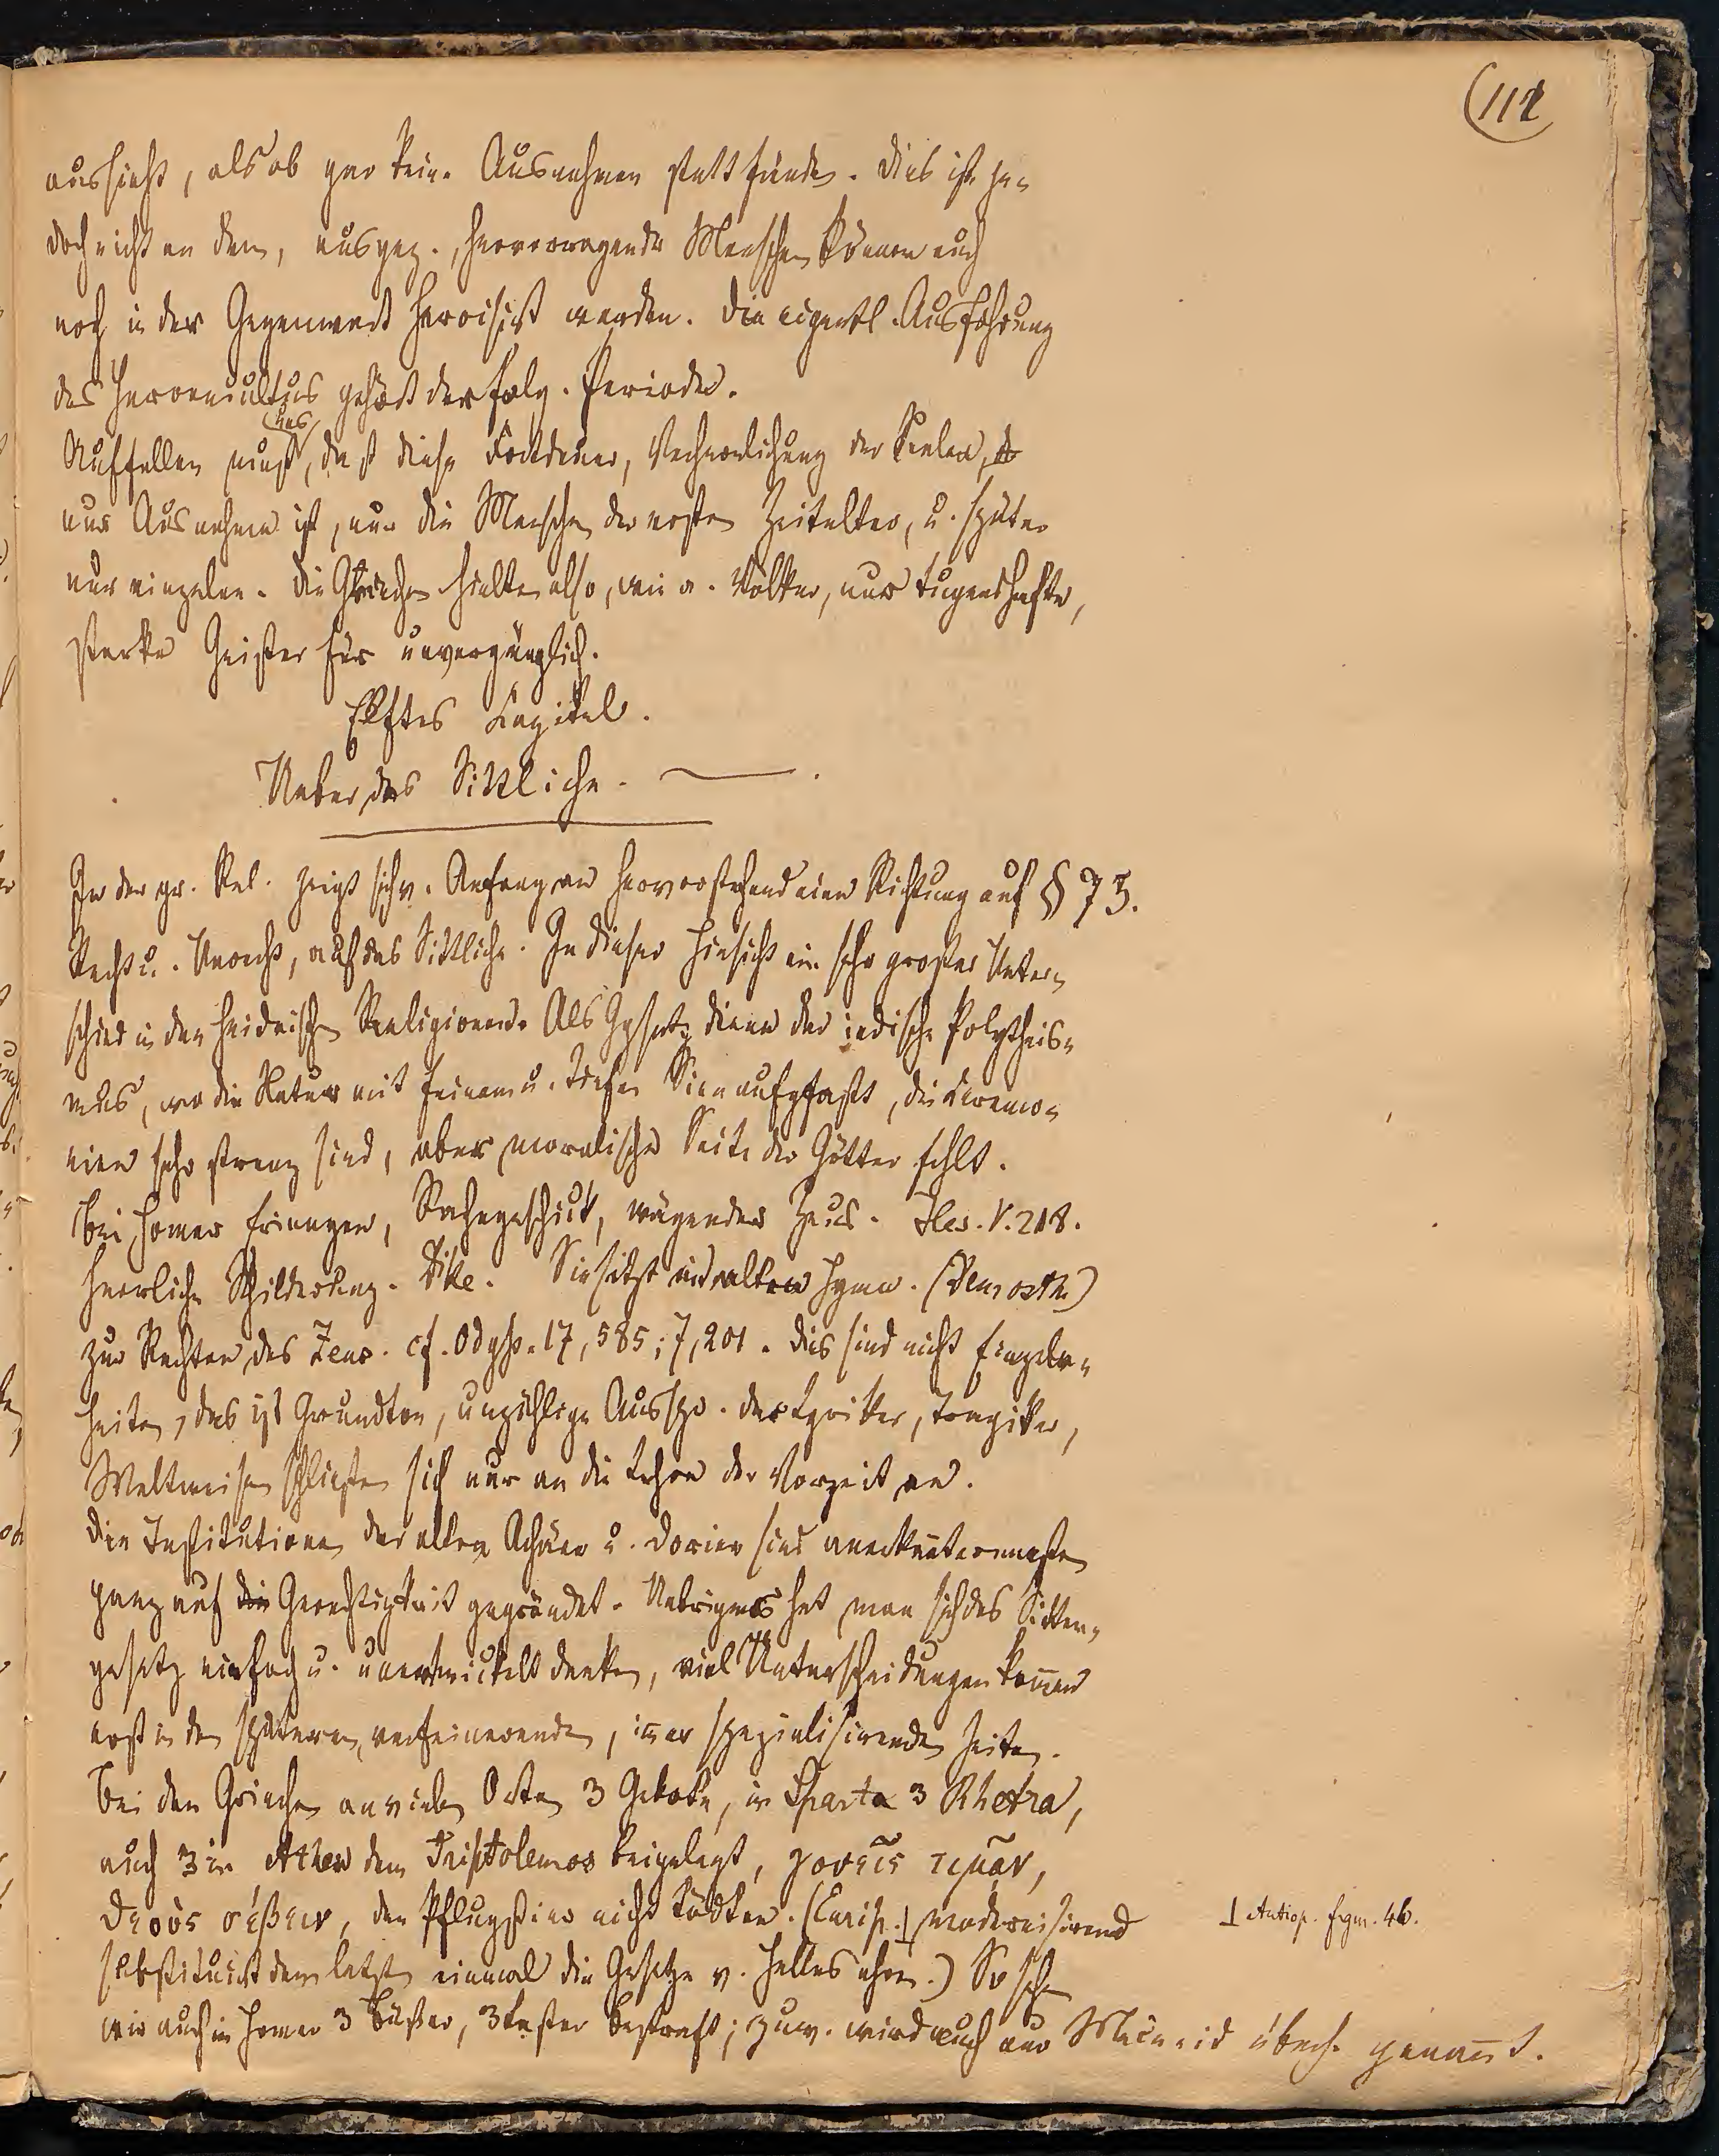 (112
aussieht, als ob gar keine Ausnahmen stattfänden. Dies ist je=
doch nicht an dem, ausgez., hervorragende Menschen können auch
noch in der Gegenwart heroisirt werden. Die eigentl. Ausführung
des Heroencultus gehört der folg. Periode.
Auffallen muß uns, daß diese Fortdauer, Verherrlichung der Seelen,
nur Ausnahme ist, nur die Menschen der ersten Zeitalter, u. später
nur einzelne. Die Griechen hielten also, wie a. Völker, nur tugendhafte,
starke Geister für unvergänglich.
Elftes Capitel.
Ueber das Sittliche.
In der gr. Rel. zeigt sich v. Anfang an hervorstechend eine Richtung auf § 73.
Recht u. Unrecht, auf das Sittliche. In dieser Hinsicht ein sehr großer Unter=
schied in den heidnischen Religionen. Als Ggsatz diene der indische Polytheis=
mus, wo die Natur mit feinem u. tiefem Sinn aufgefaßt, die Ceremo=
nien sehr streng sind, aber moralische Seite der Götter fehlt.
Bei Homer Erinnyen, Rachegeschick, wägender Zeus. Hes. V. 218.
herrliche Schilderung. Dike. Sie sitzt in d. alten Hymn. (Demosth.)
zur Rechten des Zeus. cf. Odyss. 17, 585; 7, 201. Dies sind nicht Einzeln=
heiten, das ist Grundton, unzählige Ausspr. der Lyriker, Tragiker,
Weltweisen schließen sich nur an die Lehre der Vorzeit an.
Die Institutionen der alten Achäer u. Dorier sind anerkanntermaßen
ganz auf die Gerechtigkeit gegründet. Uebrigens hat man sich das Sitten=
gesetz einfach u. unentwickelt denken, viel Unterscheidungen kommen
erst in den späteren, verfeinerenden, immer spezialisirenden Zeiten.
Bei den Griechen an vielen Orten 3 Gebote, in Sparta 3 Rhetra,
auch 3 in Athen dem Triptolemos beigelegt, γονεῖς τιμᾶν,
θεοὺς σέβειν, den Pflugstier nicht tödten. (Eurip. ⊥ modernisirend
substituirt dem letzten einmal die Gesetze v. Hellas ehren.) So sehen
⊥ Antiop. frgm. 46.
wir auch in Homer 3 Büßer, 3 Laster bestraft; zuw. wird auch nur Meineid überh. genannt.